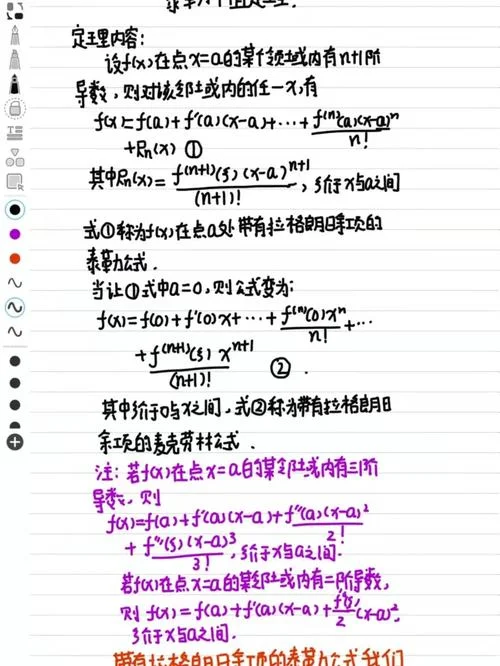 泰勒中值定理:
定理内容:
设f(x)在点x=a的某个领域内有n+1阶
导数,则对该邻域内的任一x,有
f(x)=f(a)+f'(a)(x-a)+⋯+f⁽ⁿ⁾(a)(x-a)ⁿ/n!
+Rn(x) ①
其中Rn(x)=f⁽ⁿ⁺¹⁾(ξ)(x-a)ⁿ⁺¹/(n+1)!,ξ介于x与a之间
式①称为f(x)在点a处带有拉格朗日余项的
泰勒公式.
当让①式中a=0,则公式变为:
f(x)=f(0)+f'(0)x+⋯+f⁽ⁿ⁾(0)xⁿ/n!+⋯
+f⁽ⁿ⁺¹⁾(ξ)xⁿ⁺¹/(n+1)! ②.
其中ξ介于0与x之间,式②称为带有拉格朗日
余项的麦克劳林公式.
注:若f(x)在点x=a的某邻域内有三阶
导数,则
f(x)=f(a)+f'(a)(x-a)+f''(a)(x-a)²/2!
+f'''(ξ)(x-a)³/3!,ξ介于x与a之间.
若f(x)在点x=a的某邻域内有二阶导数,
则f(x)=f(a)+f'(a)(x-a)+f''(ξ)/2(x-a)²,
ξ介于x与a之间.
带有拉格朗日余项的泰勒公式我们